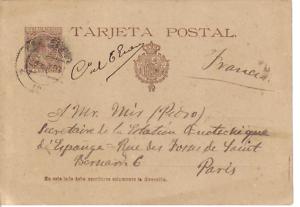 TARJETA POSTAL.
Francia
A Mr. Mir (Pedro)
Secretaire de la Station Œnotechnique
d'Espagne - Rue des Fossés de Saint
Bernard 6
Paris
En este lado debe escribirse solamente la dirección.